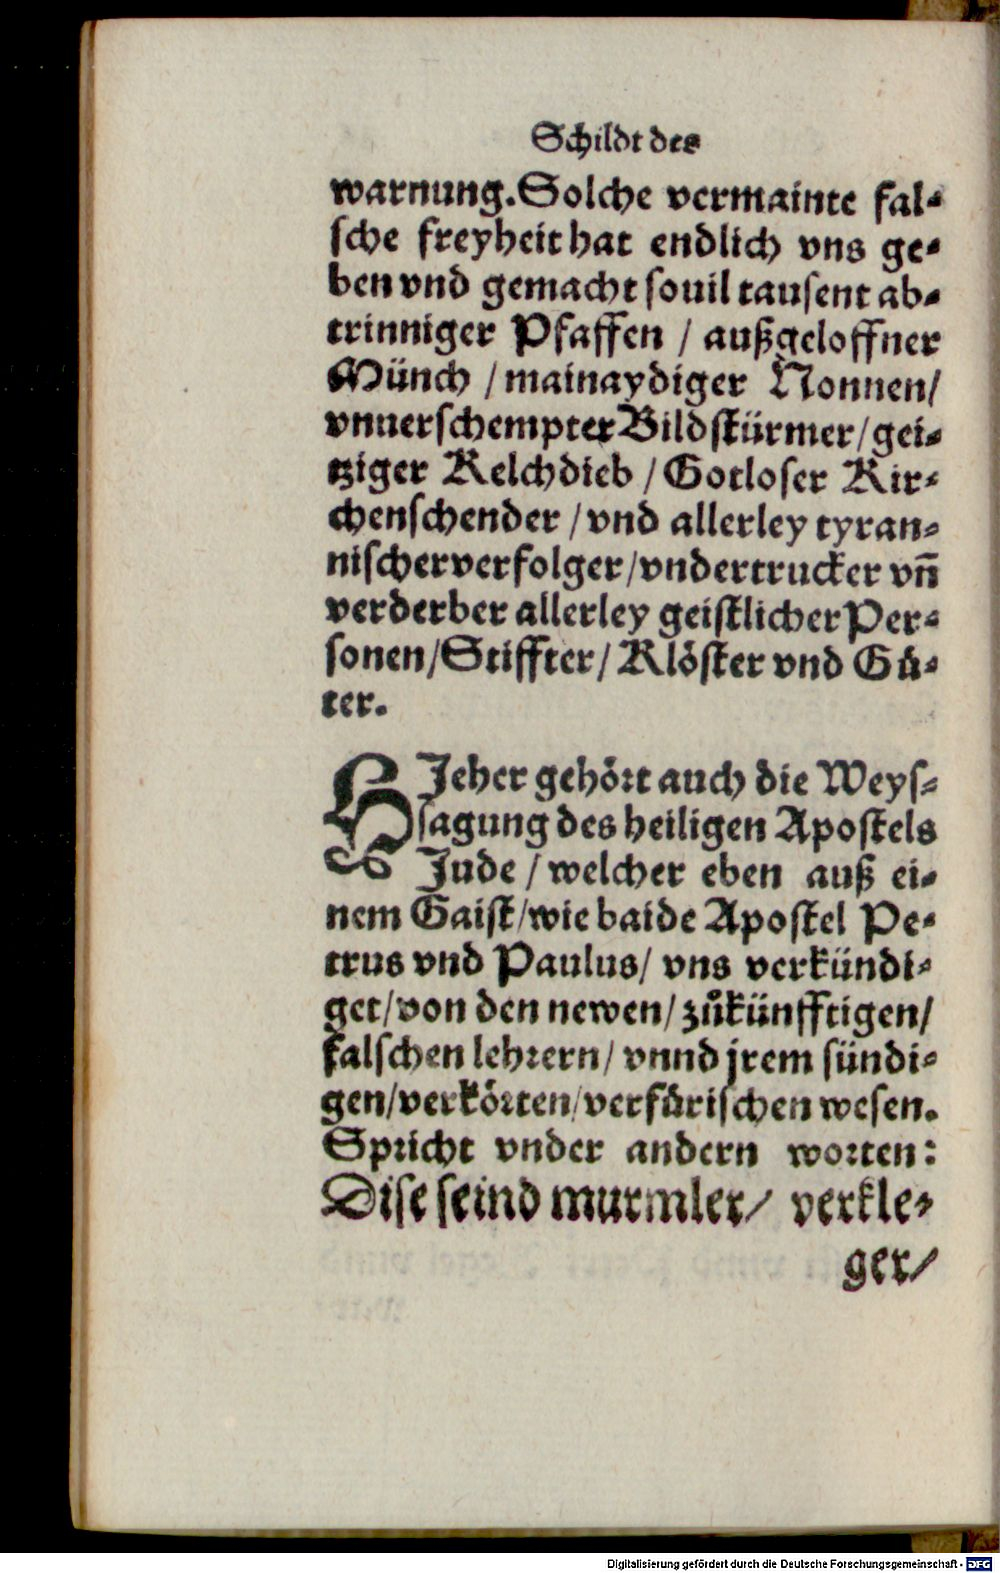 Schildt des
warnung. Solche vermainte fal-
sche freyheit hat endlich vns ge-
ben vnd gemacht souil tausent ab-
trinniger Pfaffen / außgeloffner
Münch / mainaydiger Nonnen/
vnuerschempter Bildstürmer / gei-
tziger Kelchdieb / Gotloser Kir-
chenschender / vnd allerley tyran-
nischer verfolger/vndertrucker vñ
verderber allerley geistlicher Per-
sonen/Stiffter/ Klöster vnd Gü-
ter.
HIeher gehört auch die Weys-
sagung des heiligen Apostels
Jude / welcher eben auß ei-
nem Gaist/wie baide Apostel Pe-
trus vnd Paulus/ vns verkündi-
get/von den newen/ zůkünfftigen/
falschen lehrern/ vnnd jrem sündi-
gen/verkörten/verfürischen wesen.
Spricht vnder andern worten:
Dise seind murmler/ verkle-
ger/
Digitalisierung gefördert durch die Deutsche Forschungsgemeinschaft - DFG